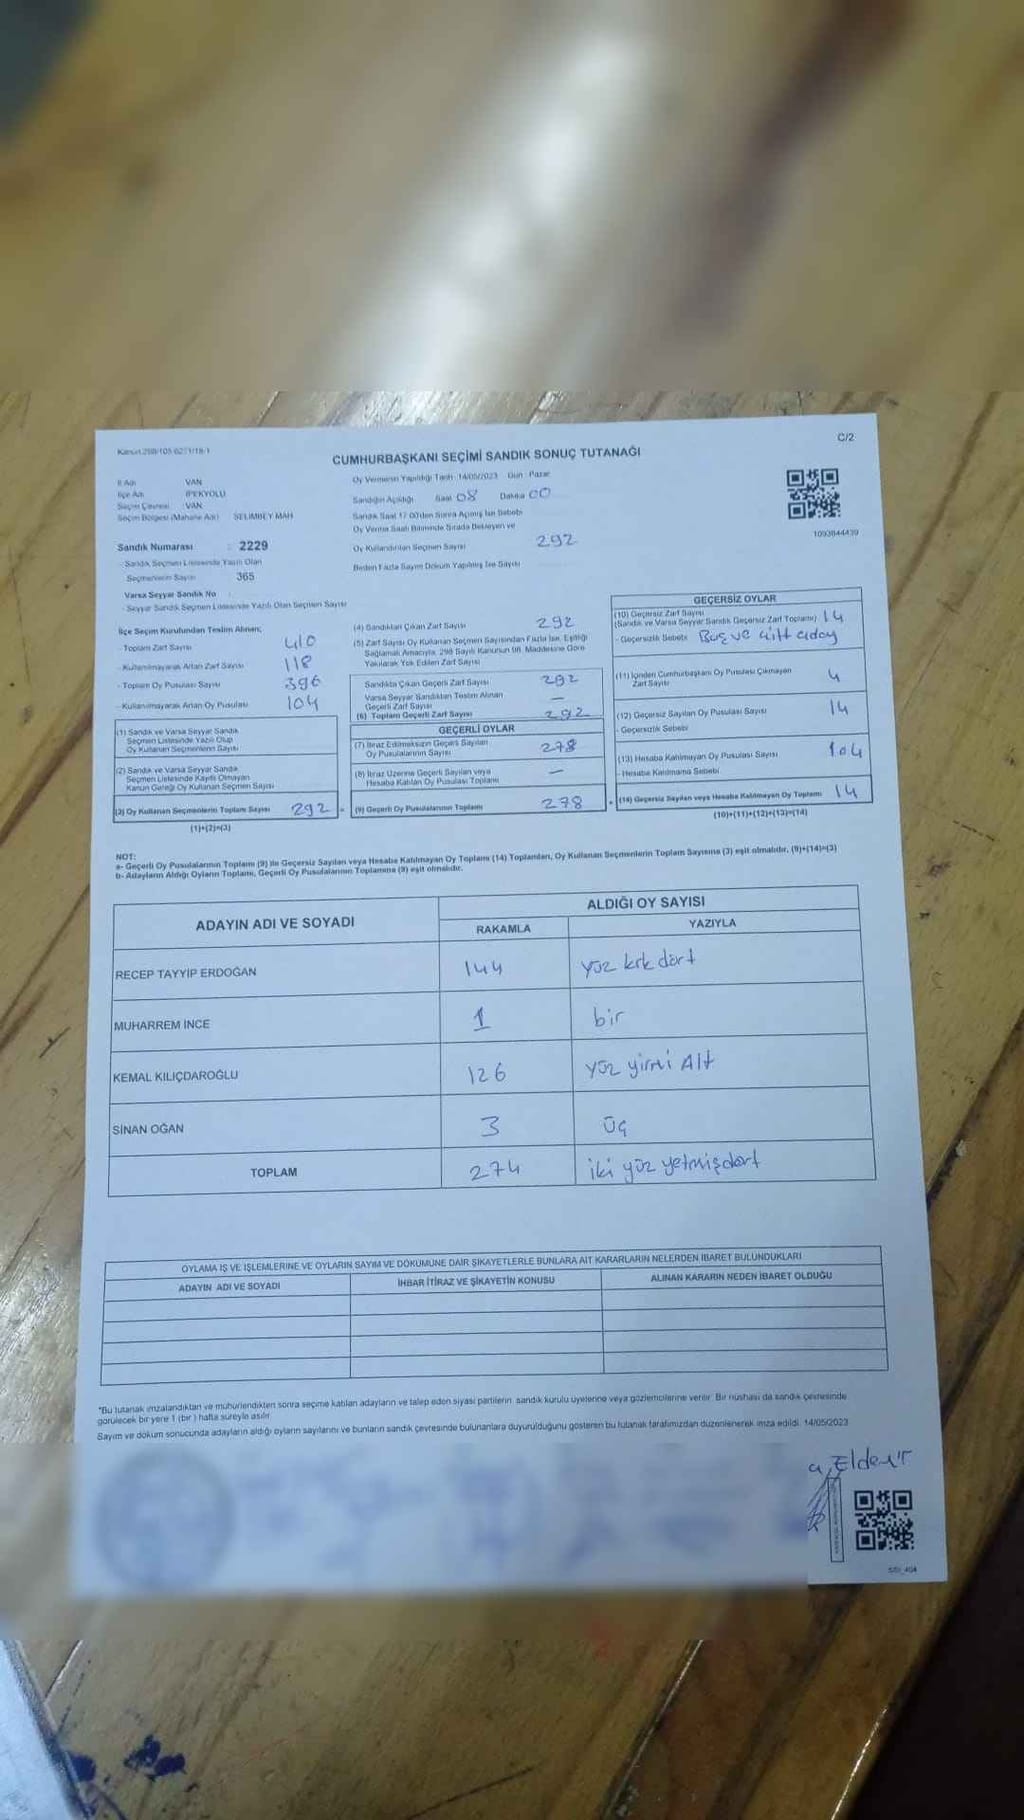 Kanun 298/105-6271/18-1
C/2
CUMHURBAŞKANI SEÇİMİ SANDIK SONUÇ TUTANAĞI
İl Adı VAN
İlçe Adı İPEKYOLU
Seçim Çevresi VAN
Seçim Bölgesi (Mahalle Adı) SELİMBEY MAH
Sandık Numarası : 2229
- Sandık Seçmen Listesinde Yazılı Olan
Seçmenlerin Sayısı 365
Varsa Seyyar Sandık No :
- Seyyar Sandık Seçmen Listesinde Yazılı Olan Seçmen Sayısı
Oy Vermenin Yapıldığı Tarih 14/05/2023 Gün : Pazar
Sandığın Açıldığı Saat 08 Dakika 00
Sandık Saat 17.00'den Sonra Açılmış İse Sebebi
Oy Verme Saati Bitiminde Sırada Bekleyen ve
Oy Kullandırılan Seçmen Sayısı 292
Birden Fazla Sayım Döküm Yapılmış İse Sayısı
1093844439
İlçe Seçim Kurulundan Teslim Alınan;
- Toplam Zarf Sayısı 410
- Kullanılmayarak Artan Zarf Sayısı 118
- Toplam Oy Pusulası Sayısı 396
- Kullanılmayarak Artan Oy Pusulası 104
(1) Sandık ve Varsa Seyyar Sandık
Seçmen Listesinde Yazılı Olup
Oy Kullanan Seçmenlerin Sayısı
(2) Sandık ve Varsa Seyyar Sandık
Seçmen Listesinde Kayıtlı Olmayan
Kanun Gereği Oy Kullanan Seçmen Sayısı
(3) Oy Kullanan Seçmenlerin Toplam Sayısı 292
(1)+(2)=(3)
(4) Sandıktan Çıkan Zarf Sayısı 292
(5) Zarf Sayısı Oy Kullanan Seçmen Sayısından Fazla İse, Eşitliği
Sağlamak Amacıyla, 298 Sayılı Kanunun 98. Maddesine Göre
Yakılarak Yok Edilen Zarf Sayısı
Sandıkta Çıkan Geçerli Zarf Sayısı 292
Varsa Seyyar Sandıktan Teslim Alınan
Geçerli Zarf Sayısı —
(6) Toplam Geçerli Zarf Sayısı 292
GEÇERLİ OYLAR
(7) İtiraz Edilmeksizin Geçerli Sayılan
Oy Pusulalarının Sayısı 278
(8) İtiraz Üzerine Geçerli Sayılan veya
Hesaba Katılan Oy Pusulası Toplamı —
(9) Geçerli Oy Pusulalarının Toplamı 278
GEÇERSİZ OYLAR
(10) Geçersiz Zarf Sayısı
(Sandık ve Varsa Seyyar Sandık Geçersiz Zarf Toplamı) 14
- Geçersizlik Sebebi Boş ve çift aday
(11) İçinden Cumhurbaşkanı Oy Pusulası Çıkmayan
Zarf Sayısı 4
(12) Geçersiz Sayılan Oy Pusulası Sayısı 14
- Geçersizlik Sebebi
(13) Hesaba Katılmayan Oy Pusulası Sayısı 104
- Hesaba Katılmama Sebebi
(14) Geçersiz Sayılan veya Hesaba Katılmayan Oy Toplamı 14
(10)+(11)+(12)+(13)=(14)
NOT:
a- Geçerli Oy Pusulalarının Toplamı (9) ile Geçersiz Sayılan veya Hesaba Katılmayan Oy Toplamı (14) Toplamları, Oy Kullanan Seçmenlerin Toplam Sayısına (3) eşit olmalıdır. (9)+(14)=(3)
b- Adayların Aldığı Oyların Toplamı, Geçerli Oy Pusulalarının Toplamına (9) eşit olmalıdır.
ADAYIN ADI VE SOYADI
ALDIĞI OY SAYISI
RAKAMLA YAZIYLA
RECEP TAYYİP ERDOĞAN 144 yüz kırk dört
MUHARREM İNCE 1 bir
KEMAL KILIÇDAROĞLU 126 yüz yirmi Altı
SİNAN OĞAN 3 üç
TOPLAM 274 iki yüz yetmişdört
OYLAMA İŞ VE İŞLEMLERİNE VE OYLARIN SAYIM VE DÖKÜMÜNE DAİR ŞİKAYETLERLE BUNLARA AİT KARARLARIN NELERDEN İBARET BULUNDUKLARI
ADAYIN ADI VE SOYADI İHBAR İTİRAZ VE ŞİKAYETİN KONUSU ALINAN KARARIN NEDEN İBARET OLDUĞU
*Bu tutanak imzalandıktan ve mühürlendikten sonra seçime katılan adayların ve talep eden siyasi partilerin sandık kurulu üyelerine veya gözlemcilerine verilir. Bir nüshası da sandık çevresinde
görülecek bir yere 1 (bir) hafta süreyle asılır.
Sayım ve döküm sonucunda adayların aldığı oyların sayılarını ve bunların sandık çevresinde bulunanlara duyurulduğunu gösteren bu tutanak tarafımızdan düzenlenerek imza edildi. 14/05/2023